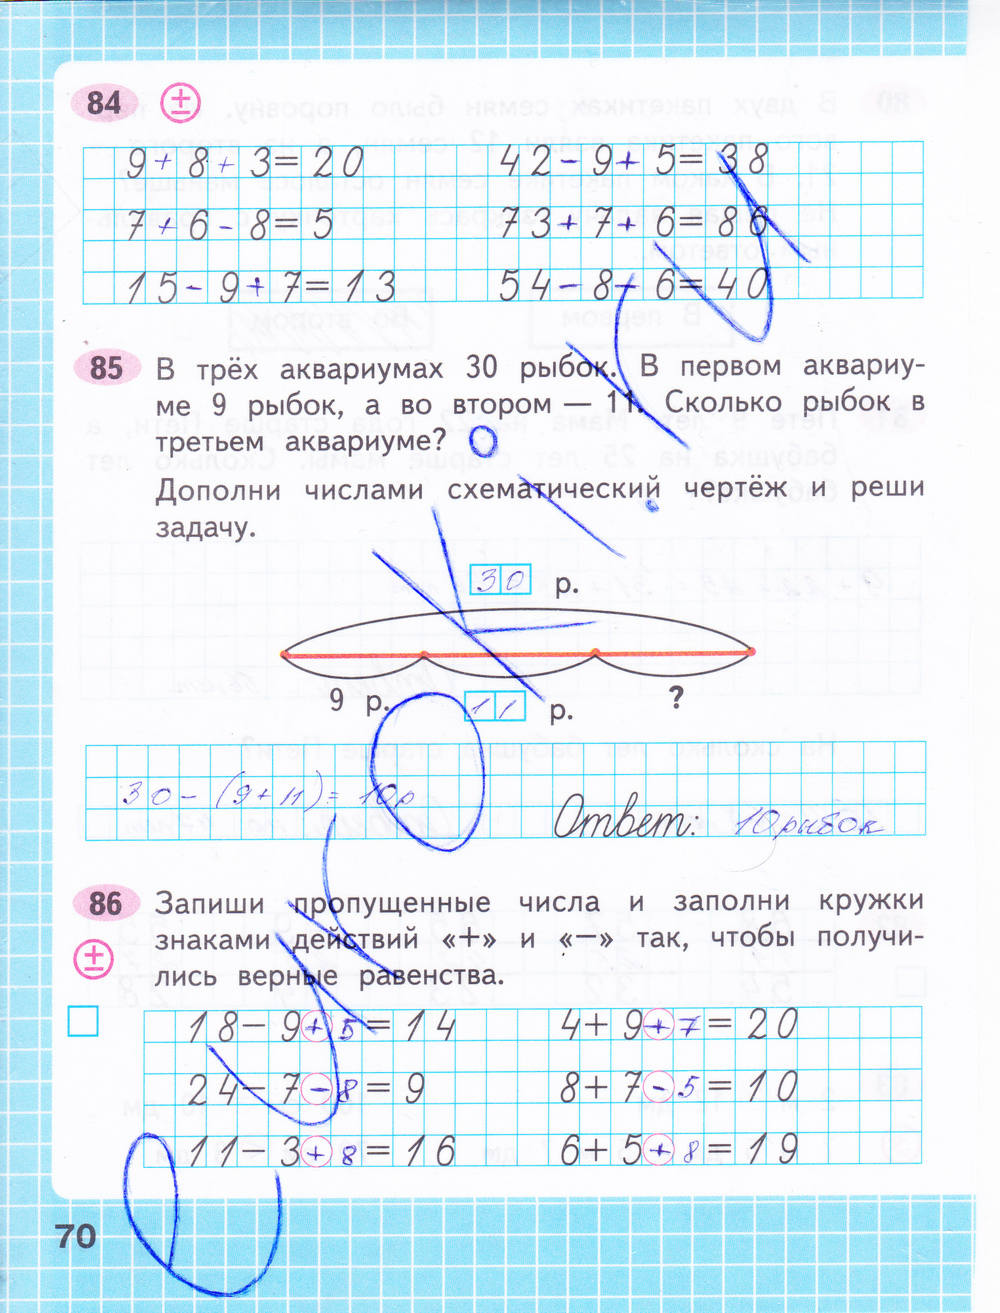 84 ±
9 + 8 + 3 = 20 42 - 9 + 5 = 38
7 + 6 - 8 = 5 73 + 7 + 6 = 86
15 - 9 + 7 = 13 54 - 8 - 6 = 40
85 В трёх аквариумах 30 рыбок. В первом аквариу-
ме 9 рыбок, а во втором — 11. Сколько рыбок в
третьем аквариуме?
Дополни числами схематический чертёж и реши
задачу.
30 р.
9 р. 11 р. ?
30 - (9 + 11) = 10 р
Ответ: 10 рыбок
86 Запиши пропущенные числа и заполни кружки
± знаками действий «+» и «−» так, чтобы получи-
лись верные равенства.
18 - 9 + 5 = 14 4 + 9 + 7 = 20
24 - 7 - 8 = 9 8 + 7 - 5 = 10
11 - 3 + 8 = 16 6 + 5 + 8 = 19
70